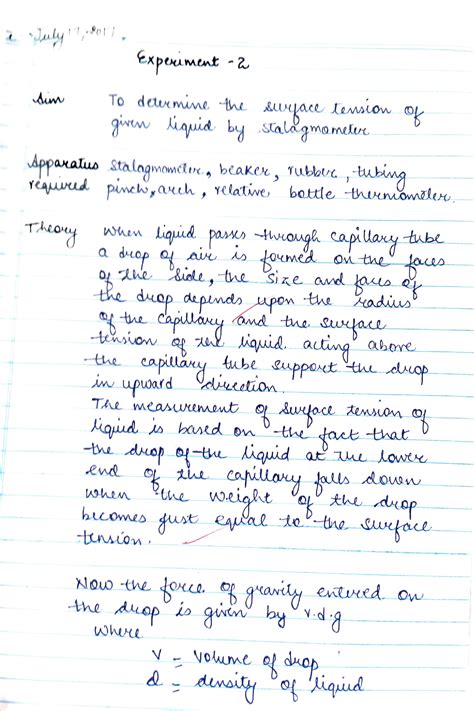 July 17, 2017.
Experiment - 2
Aim To determine the surface tension of
given liquid by stalagmometer
Apparatus stalagmometer, beaker, rubber, tubing
required pinch, arch, relative bottle thermometer.
Theory when liquid passes through capillary tube
a drop of air is formed on the faces
of the side, the size and faces of
the drop depends upon the radius
of the capillary and the surface
tension of the liquid acting above
the capillary tube support the drop
in upward direction.
The measurement of surface tension of
liquid is based on the fact that
the drop of the liquid at the lower
end of the capillary falls down
when the weight of the drop
becomes just equal to the surface
tension.
Now the force of gravity entered on
the drop is given by v.d.g
where
v = volume of drop
d = density of liquid